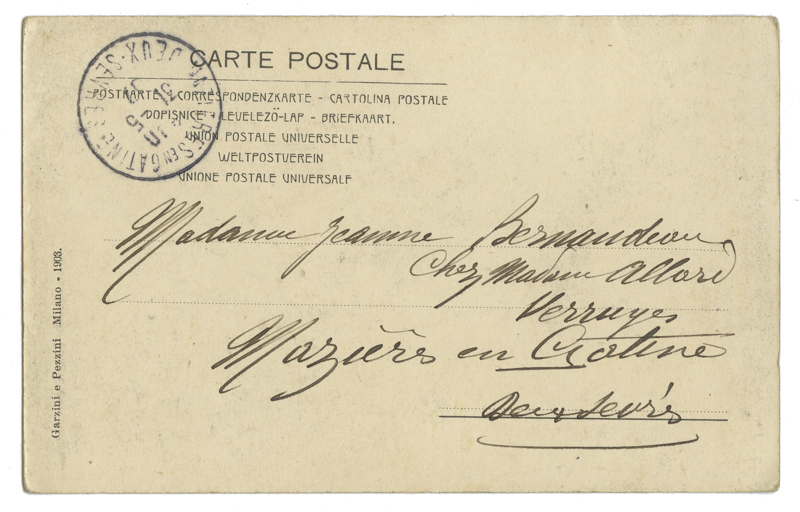 CARTE POSTALE
POSTKARTE - CORRESPONDENZKARTE - CARTOLINA POSTALE
DOPISNICE - LEVELEZÖ-LAP - BRIEFKAART.
UNION POSTALE UNIVERSELLE
WELTPOSTVEREIN
UNIONE POSTALE UNIVERSALE
MAZIERES EN GATINE
DEUX-SEVRES
Madame Jeanne Bernaudeau
Chez Madame Allard
Verruyes
Mazières en Gatine
Deux Sevrès
Garzini e Pezzini Milano - 1903.